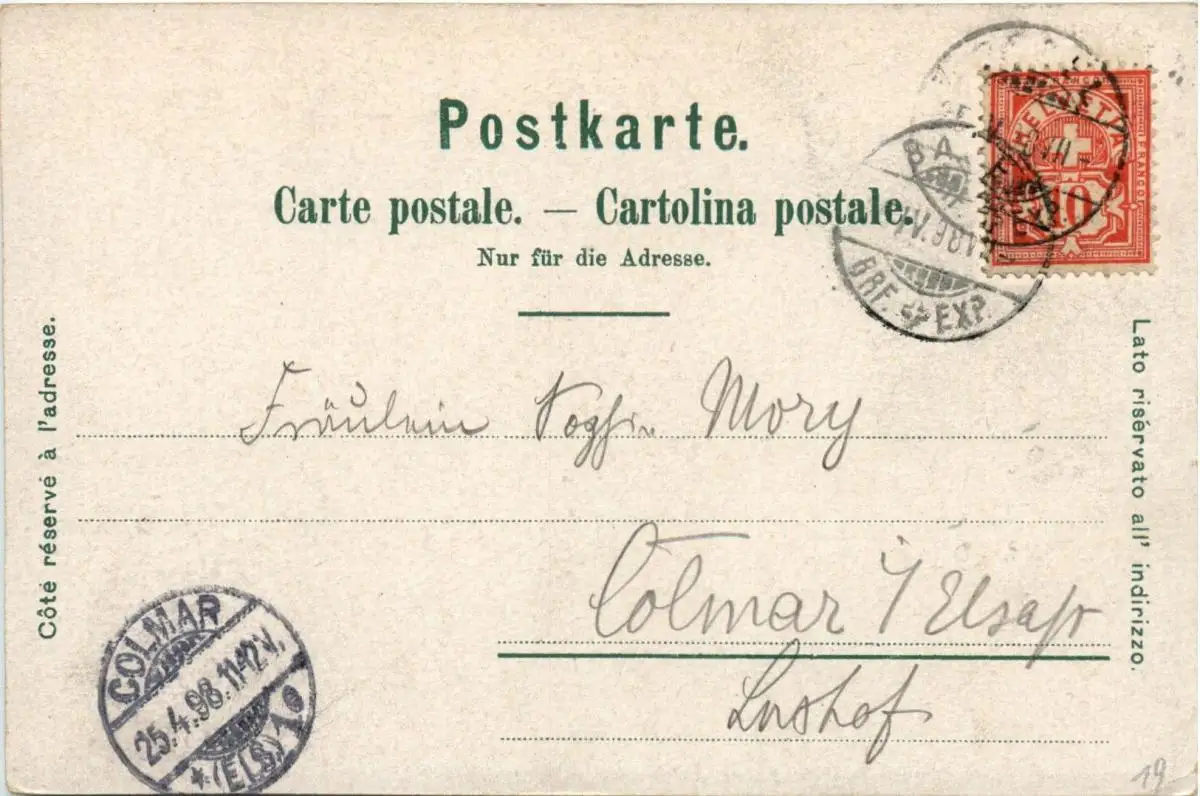 Postkarte.
Carte postale. — Cartolina postale.
Nur für die Adresse.
HELVETIA
FRANCO
10
BRF. EXP.
Côté réservé à l'adresse.
Lato risérvato all' indirizzo.
Fräulein Mory
Colmar i/ Elsaß
COLMAR
25.4.98.11-12V.
* (ELS.) 1 e
19